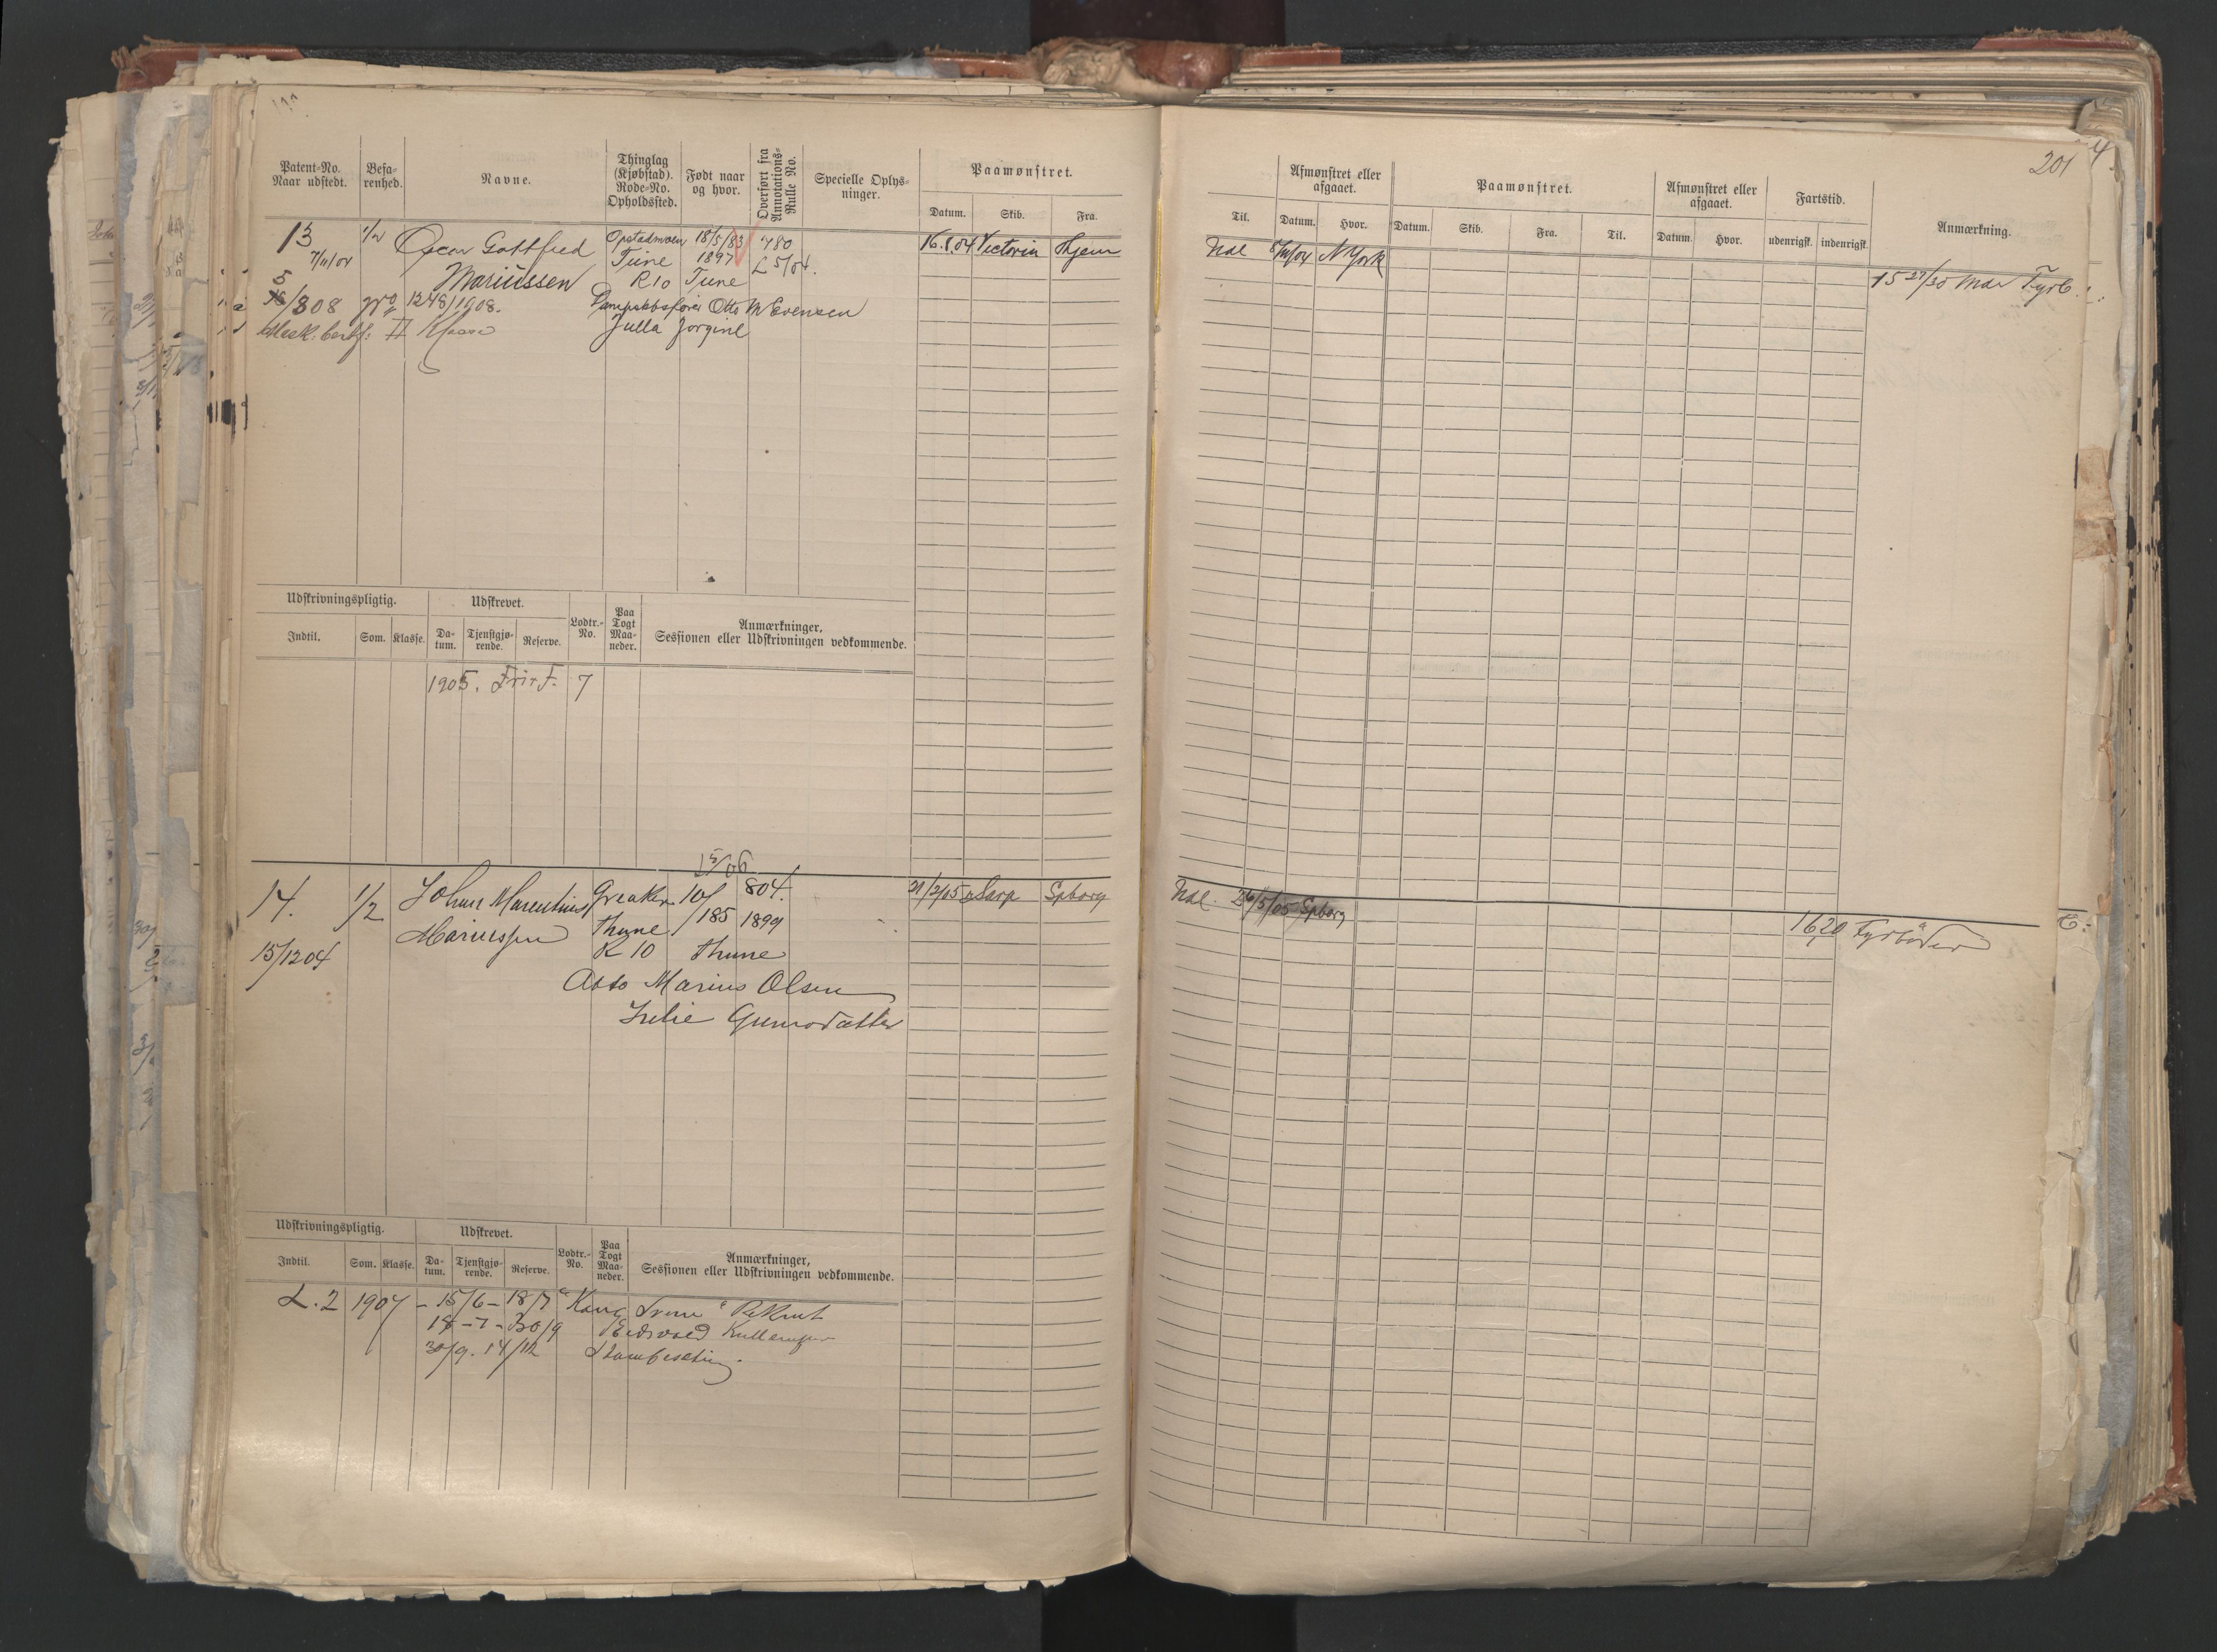 201
Patent-No. Naar udstedt.
Befarenhed.
Navne.
Thinglag (Kjøbstad). Rode-No. Opholdssted.
Født naar og hvor.
Overført fra Annotations-Rulle No.
Specielle Oplysninger.
Paamønstret.
Datum. Skib. Fra.
Til.
Afmønstret eller afgaaet.
Datum. Hvor.
Paamønstret.
Datum. Skib. Fra. Til.
Afmønstret eller afgaaet.
Datum. Hvor.
Fartstid.
udenrigsk. indenrigsk.
Anmærkning.
13 1/2 Oscar Gottfred Opstadmoen 18/5/83 780 16.8.04 Victoria Hjem Nal 8/11/04 N York
7/11/04 Mariussen Tune 1897 L 5/04.
R10 Tune
15 27/30 Mdr Fyrb.
5
/808 No 1248/1908. Dampskibsfører Otto M Evensen
Mesk. Certf: II Klasse Julla Jorgine
Udskrivningspligtig. Udskrevet. Lodtr.-No. Paa Togt Maaneder. Anmærkninger, Sessionen eller Udskrivningen vedkommende.
Indtil. Som. Klasse. Datum. Tjenstgjørende. Reserve.
1905. Frir F. 7
5/06
14. 1/2 Johan Marentius Greaker 10/ 804. 21/2/05 Sarp Spborg Nal. 26/5/05 Spborg
Mariussen Thune /185 1899
15/1204 R 10 Thune
16,20 Fyrbøder
Otto Marius Olsen
Julie Gunrodatter
Udskrivningspligtig. Udskrevet. Lodtr.-No. Paa Togt Maaneder. Anmærkninger, Sessionen eller Udskrivningen vedkommende.
Indtil. Som. Klasse. Datum. Tjenstgjørende. Reserve.
L. 2 1907 – 15/6 – 18/7 "Kong Sverre" Rekrut
18 – 7 – 30/9 Eidsvold
30/9. 14/12 Stambesætning.